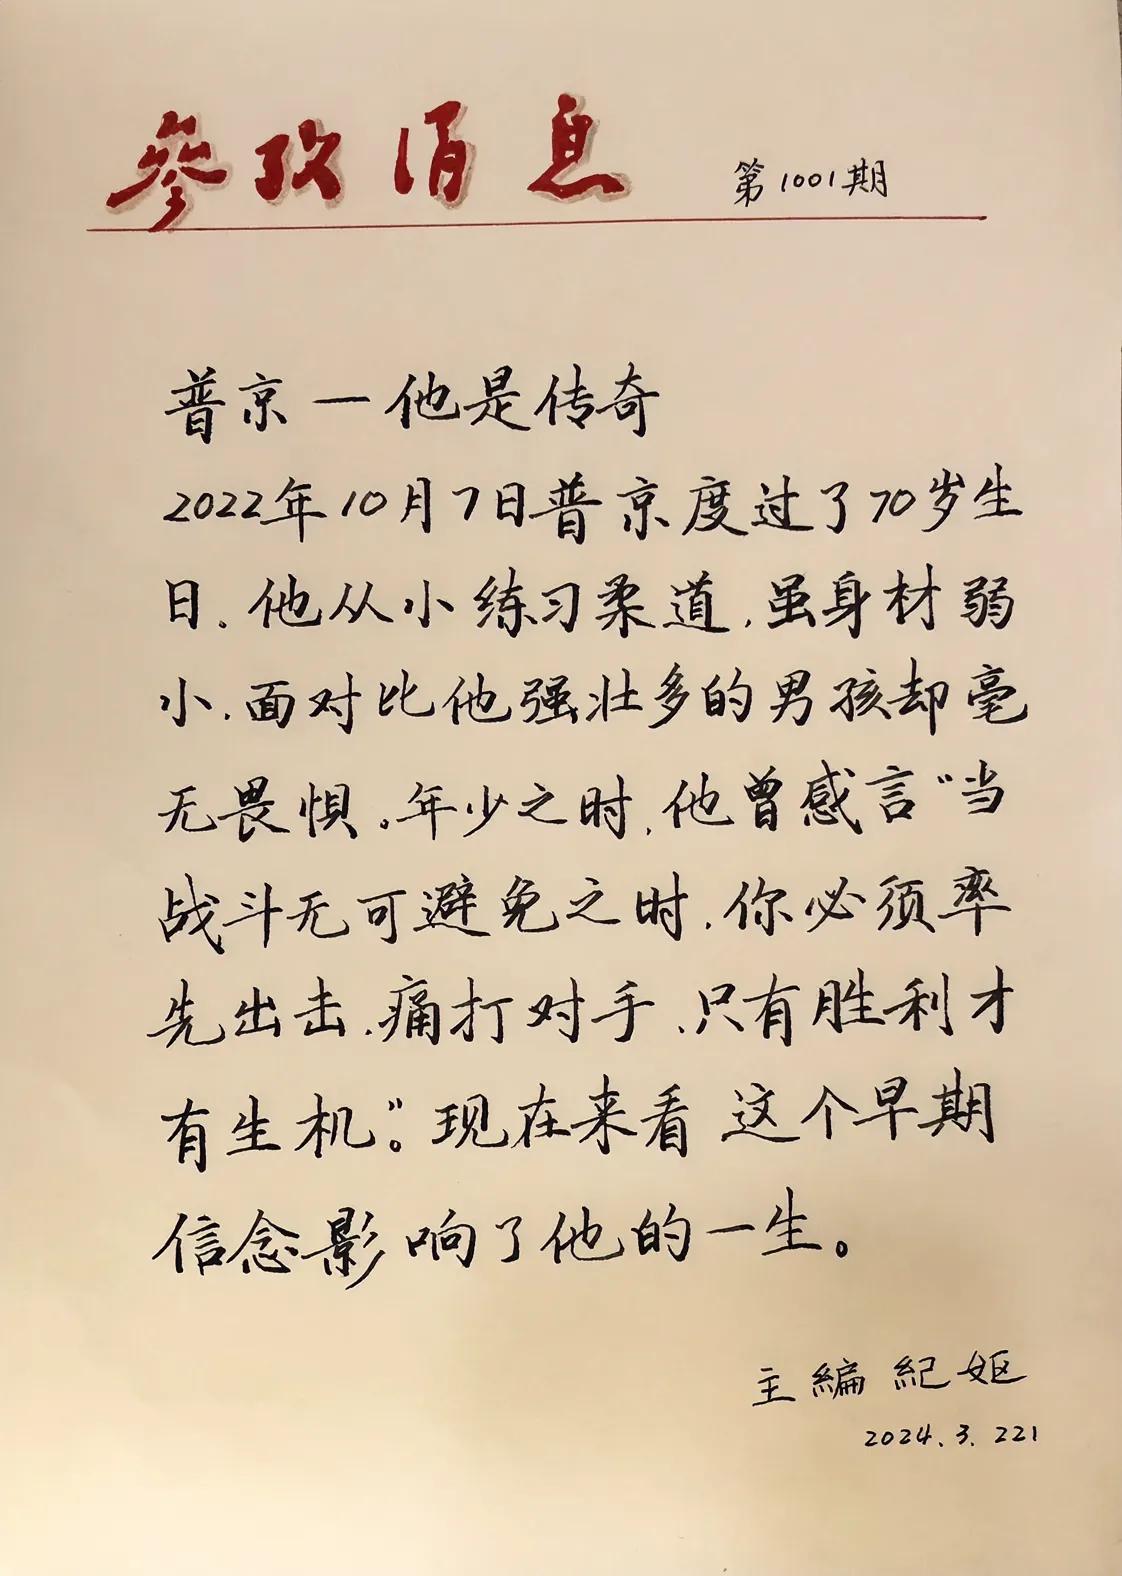 参考消息 第1001期
普京一他是传奇
2022年10月7日普京度过了70岁生
日.他从小练习柔道,虽身材弱
小.面对比他强壮多的男孩却毫
无畏惧。年少之时,他曾感言“当
战斗无可避免之时.你必须率
先出击.痛打对手,只有胜利才
有生机”。现在来看 这个早期
信念影响了他的一生。
主编 紀妪
2024.3.221